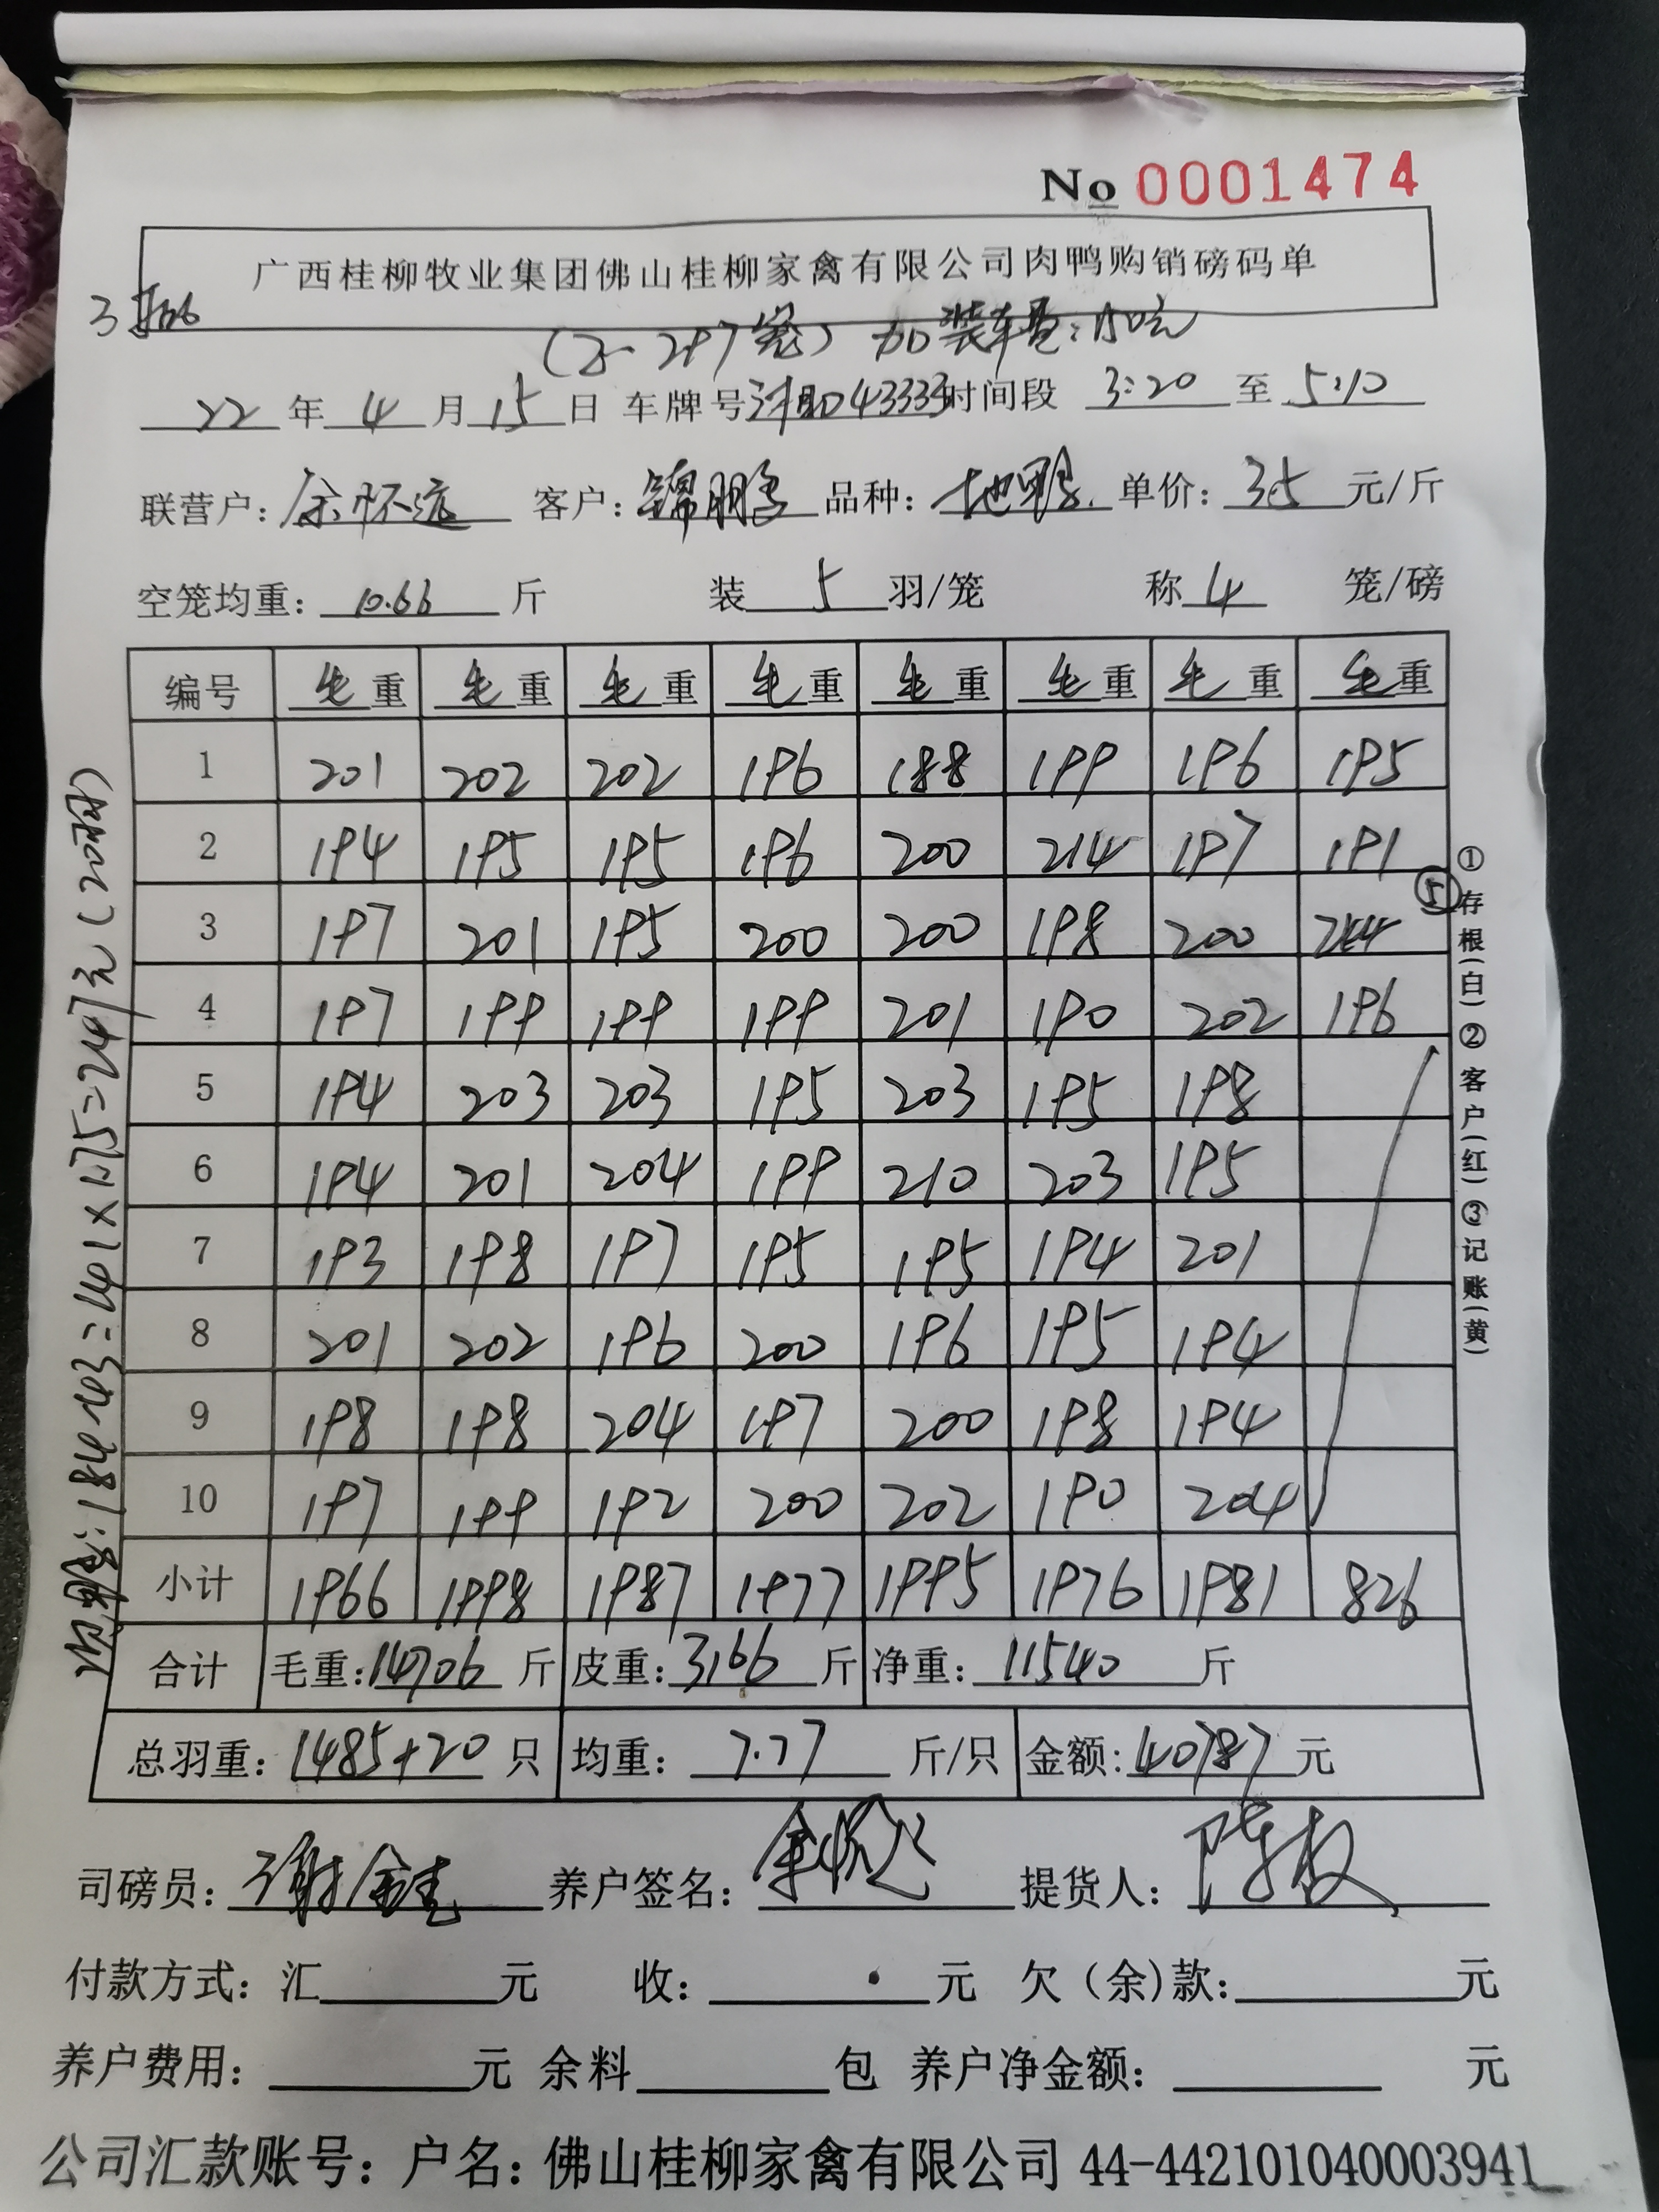 No 0001474
广西桂柳牧业集团佛山桂柳家禽有限公司肉鸭购销磅码单
3车
297笼) 加装车费:150元
22年4月15日 车牌号43333时间段 3:20 至 5:10
联营户:余怀远 客户:锦鹏 品种:地鸭 单价:3.5元/斤
空笼均重:10.66斤 装5羽/笼 称4笼/磅
编号 毛重 毛重 毛重 毛重 毛重 毛重 毛重 毛重
1 201 202 202 196 188 199 196 195
2 194 195 195 196 200 214 197 191
3 197 201 195 200 200 198 200 244 ⑤
4 197 199 199 199 201 190 202 196
5 194 203 203 195 203 195 198
6 194 201 204 199 210 203 195
7 193 198 197 195 195 194 201
8 201 202 196 200 196 195 194
9 198 198 204 197 200 198 194
10 197 199 192 200 202 190 204
小计 1966 1998 1987 1977 1995 1976 1981 826
合计 毛重:14706斤 皮重:3166斤 净重:11540斤
总羽重:1485+20只 均重:7.77斤/只 金额:40787元
184-43=141×1.75=247元(20只)
①存根(白)②客户(红)③记账(黄)
司磅员:谢金 养户签名:余怀远 提货人:陈
付款方式:汇 元 收: 元 欠(余)款: 元
养户费用: 元 余料 包 养户净金额: 元
公司汇款账号:户名:佛山桂柳家禽有限公司 44-442101040003941